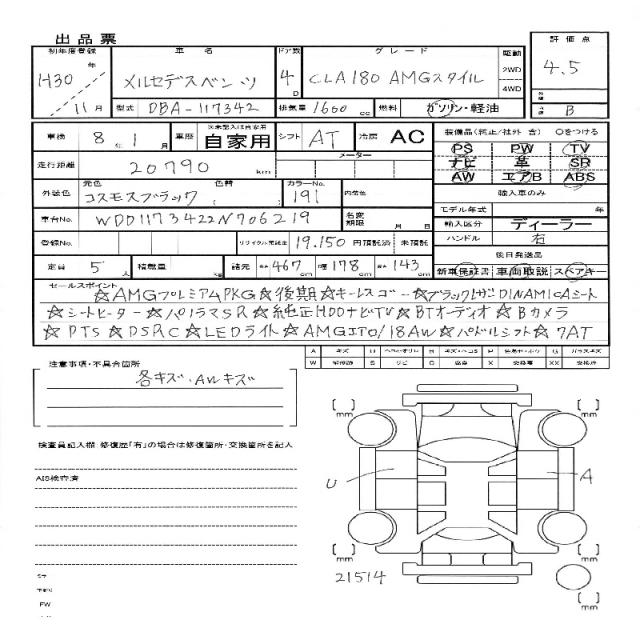 出品票
初年度登録 車名 ドア数 グレード 駆動 評価点
H30年 11月 メルセデスベンツ 4D CLA180 AMGスタイル 2WD 4WD 4.5
型式 DBA-117342 排気量 1600cc 燃料 ガソリン・軽油 B
車検 8年1月 車歴 ※未記入は自家用 自家用 シフト AT 冷房 AC 装備品(純正/社外 含) ○をつける
走行距離 20790km メーター PS PW TV
ナビ 革 SR
AW エアB ABS
外装色 元色 コスモスブラック 色替 ( ) カラーNo. 191 内装色 輸入車のみ
モデル年式 年
車台No. WDD1173422N706219 名変期限 月 日 輸入区分 ディーラー
登録No. リサイクル預託金 19,150円預託済 未預託 ハンドル 右
後日発送品
定員 5人 積載量 kg 諸元 長さ467cm 幅178cm 高さ143cm 新車保証書 車両取説 スペアキー
セールスポイント
☆AMGプレミアムPKG☆後期☆キーレスゴー☆ブラックレザーDINAMICAシート
☆シートヒーター☆パノラマSR☆純正HDDナビTV☆BTオーディオ☆Bカメラ
☆PTS☆DSRC☆LEDライト☆AMGエアロ/18AW☆パドルシフト☆7AT
A キズ U H キズ・ヘコミ P G ガラスキズ
W S サビ C 腐食 X 交換要 XX 交換済
注意事項・不具合箇所
各キズ・AWキズ
検査員記入欄 修復歴「有」の場合は修復箇所・交換箇所を記入
AIS検査済
[ ]mm [ ]mm
U A
[ ]mm [ ]mm
21514
[ ]mm